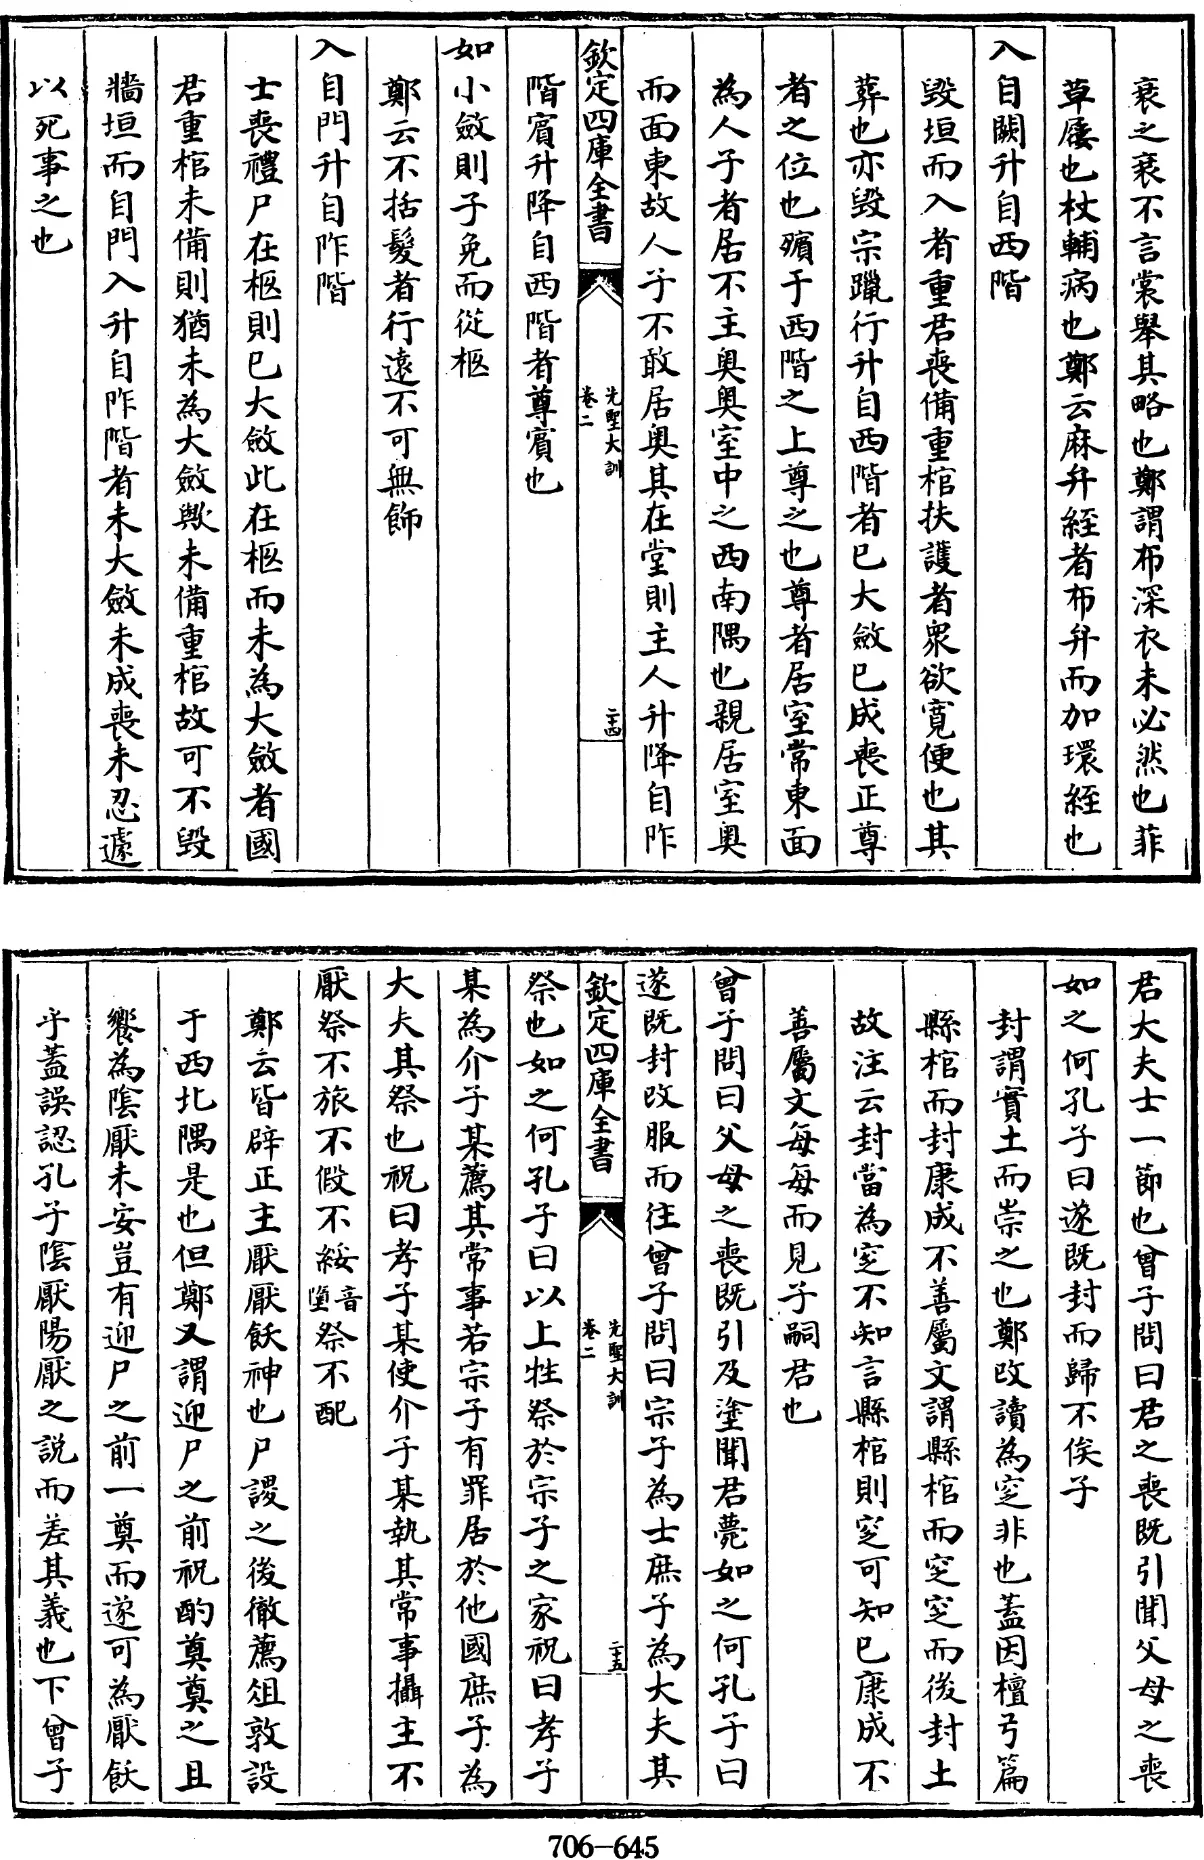 衰之衰不言裳舉其略也鄭謂布深衣未必然也菲
草屨也杖輔病也鄭云麻弁絰者布弁而加環絰也
入自闕升自西階
毀垣而入者重君喪備重棺扶護者衆欲寛便也其
葬也亦毀宗躐行升自西階者已大斂已成喪正尊
者之位也殯于西階之上尊之也尊者居室常東面
為人子者居不主奥奥室中之西南隅也親居室奥
而面東故人子不敢居奥其在堂則主人升降自阼
欽定四庫全書
先聖大訓
卷二
二十四
階賓升降自西階者尊賓也
如小斂則子免而從柩
鄭云不括髮者行逺不可無飾
入自門升自阼階
士喪禮尸在柩則已大斂此在柩而未為大斂者國
君重棺未備則猶未為大斂歟未備重棺故可不毀
牆垣而自門入升自阼階者未大斂未成喪未忍遽
以死事之也
君大夫士一節也曾子問曰君之喪既引聞父母之喪
如之何孔子曰遂既封而歸不俟子
封謂實土而崇之也鄭改讀為窆非也蓋因檀弓篇
縣棺而封康成不善屬文謂縣棺而窆窆而後封土
故注云封當為窆不知言縣棺則窆可知已康成不
善屬文每每而見子嗣君也
曾子問曰父母之喪既引及塗聞君薨如之何孔子曰
遂既封改服而往曾子問曰宗子為士庶子為大夫其
欽定四庫全書
先聖大訓
卷二
二十五
祭也如之何孔子曰以上牲祭於宗子之家祝曰孝子
某為介子某薦其常事若宗子有罪居於他國庶子為
大夫其祭也祝曰孝子某使介子某執其常事攝主不
厭祭不旅不假不綏音墮祭不配
鄭云皆辟正主厭厭飫神也尸謖之後徹薦俎敦設
于西北隅是也但鄭又謂迎尸之前祝酌奠奠之且
饗為陰厭未安豈有迎尸之前一奠而遂可為厭飫
乎蓋誤認孔子陰厭陽厭之説而差其義也下曾子
706-645